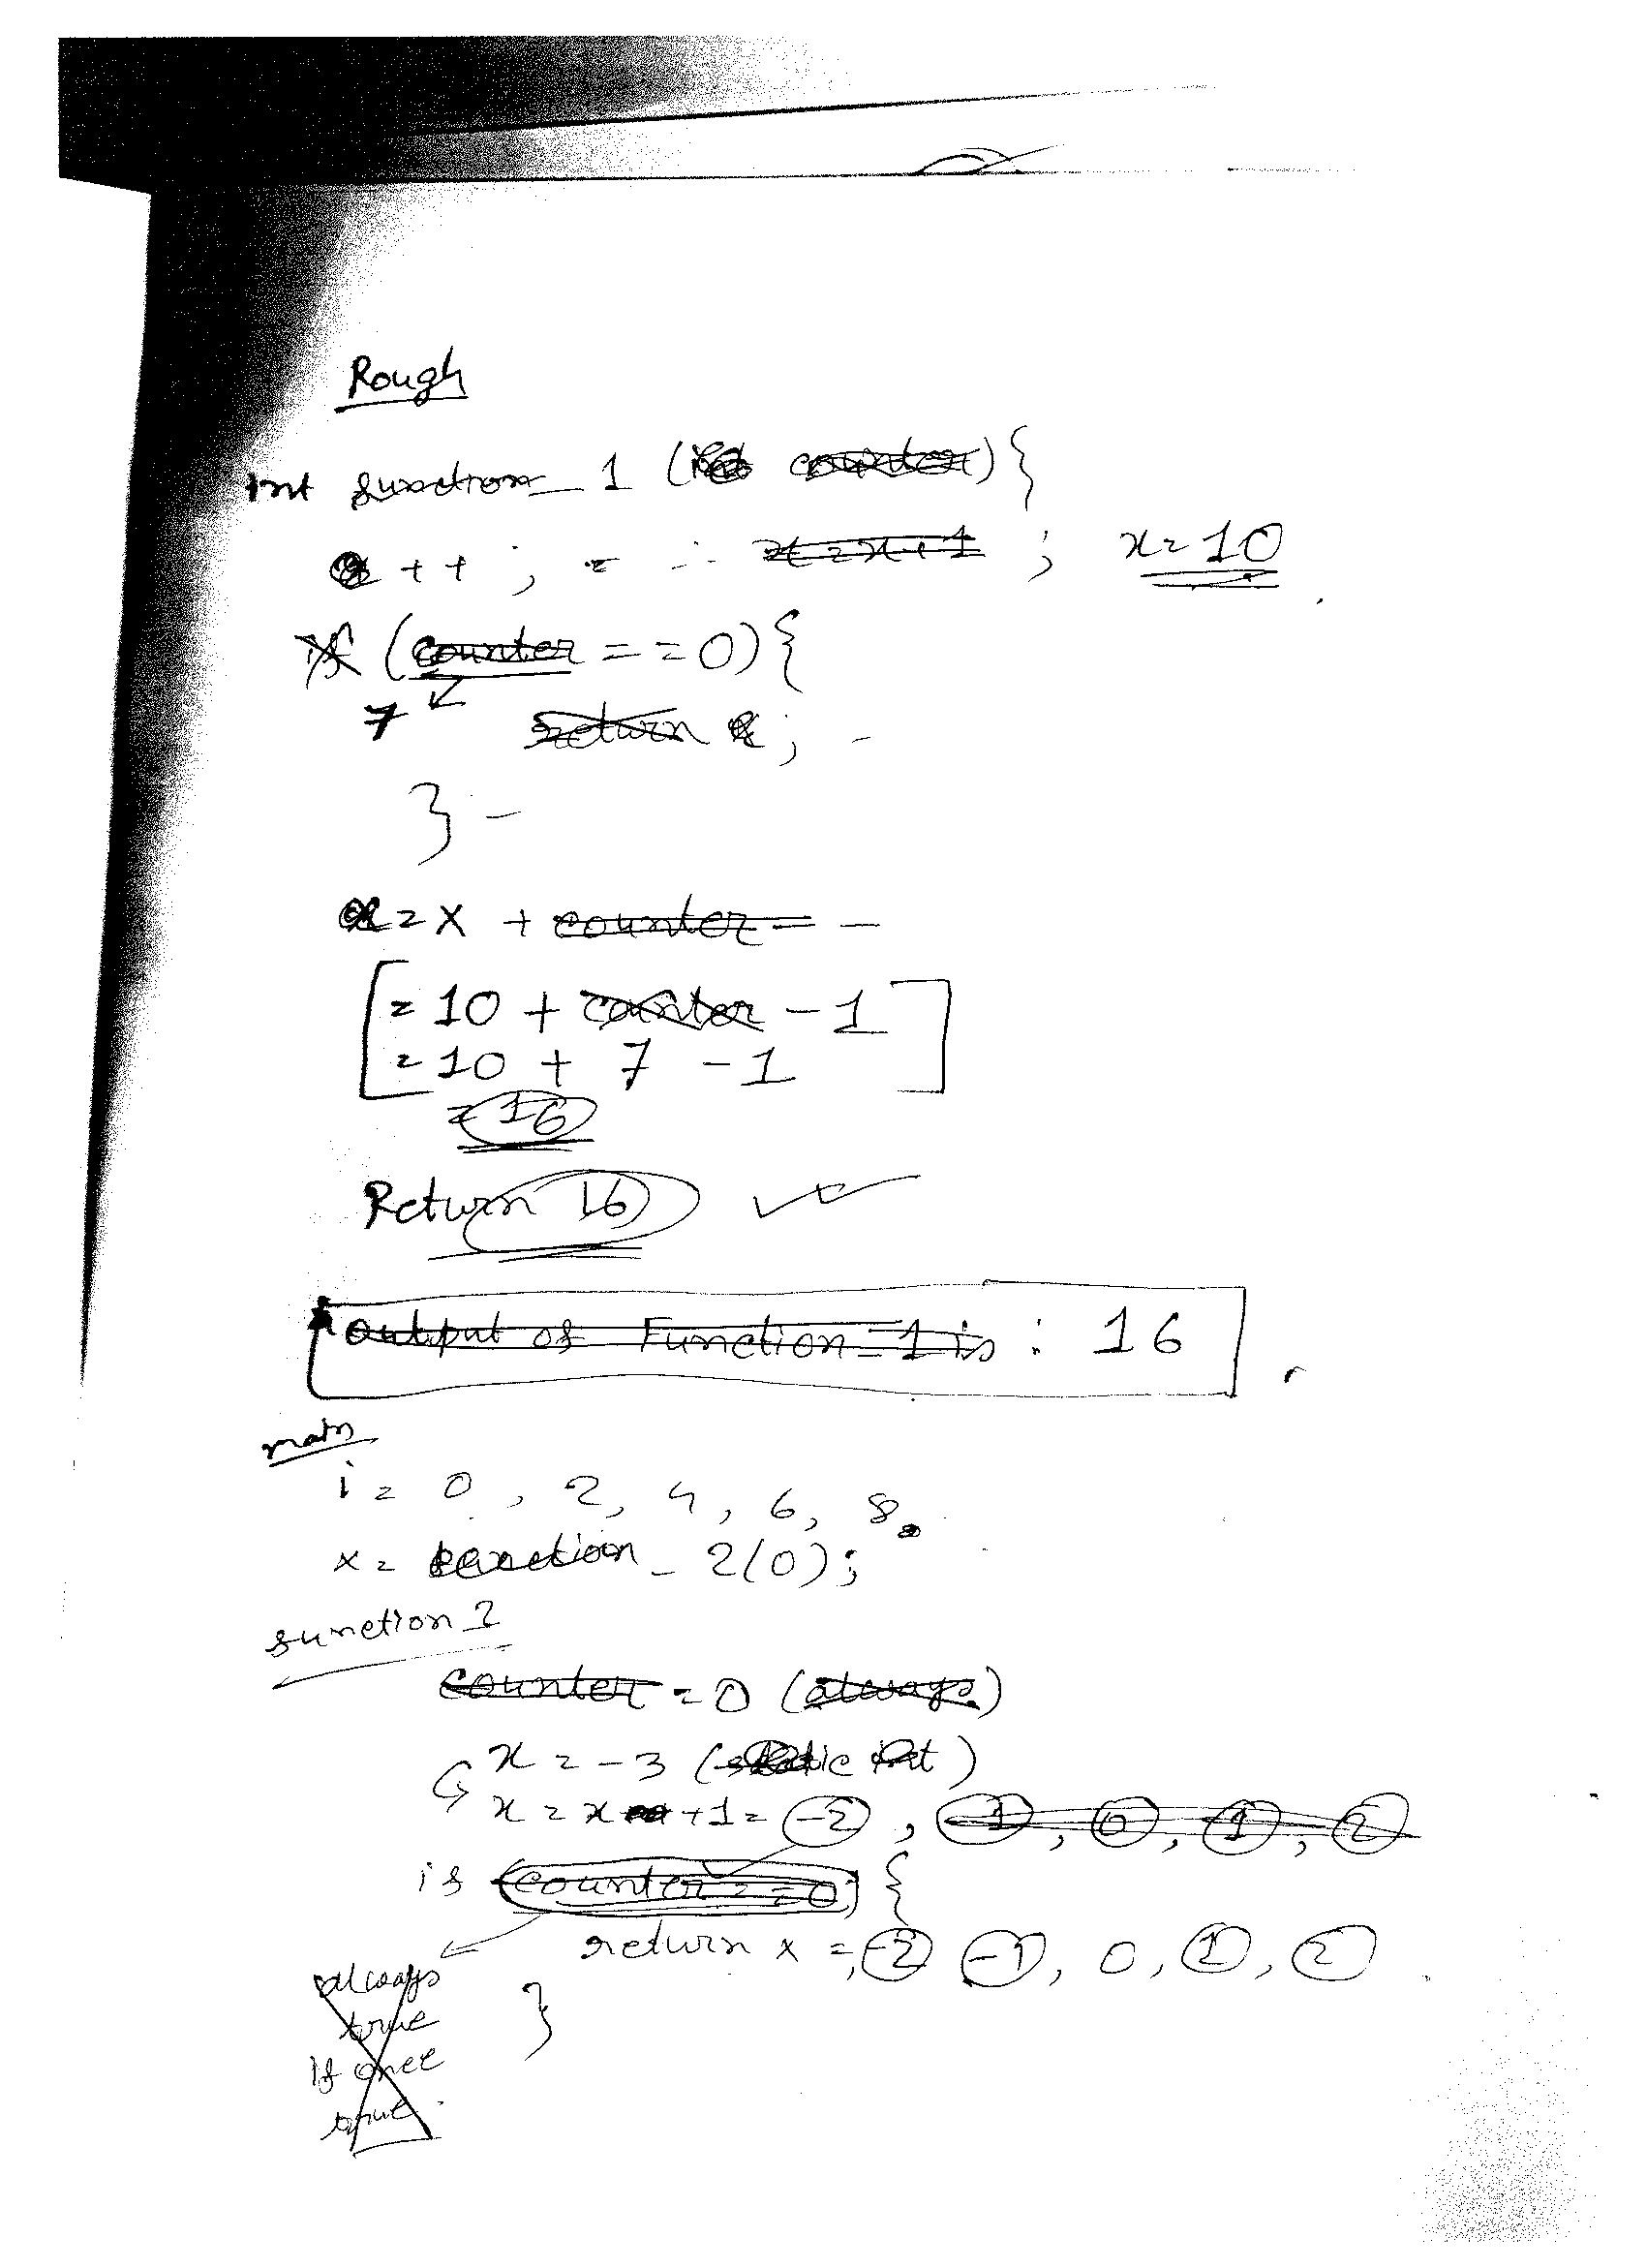 Rough
int function_1 (int counter) {
x++ ; = ∴ x=x+1 ; x=10
if (counter == 0) {
7 return x;
}
x = x + counter - -
= 10 + counter - 1
= 10 + 7 - 1
= 16
Return 16
output of Function-1 is : 16
main
i = 0, 2, 4, 6, 8
x = function_2(0);
function 2
counter = 0 (always)
x = -3 (static int)
x = x +1 = -2, -1, 0, 1, 2
if (counter == 0) {
return x = -2 -1, 0, 1, 2
always
true
if once
true
}